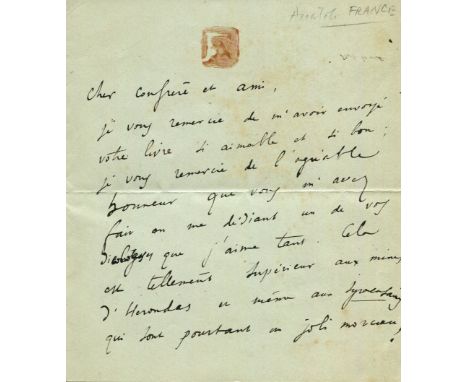 Anatole FRANCE
Cher confrère et ami,
je vous remercie de m'avoir envoyé
votre livre si aimable et si bon ;
je vous remercie de l'agréable
honneur que vous m'avez
fait en me dédiant un de vos
dialogues que j'aime tant. Cela
est tellement supérieur aux mimes
d'Herondas et même aux Syracusaines
qui sont pourtant un joli morceau,